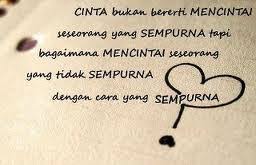 CINTA bukan bererti MENCINTAI
seseorang yang SEMPURNA tapi
bagaimana MENCINTAI seseorang
yang tidak SEMPURNA
dengan cara yang SEMPURNA